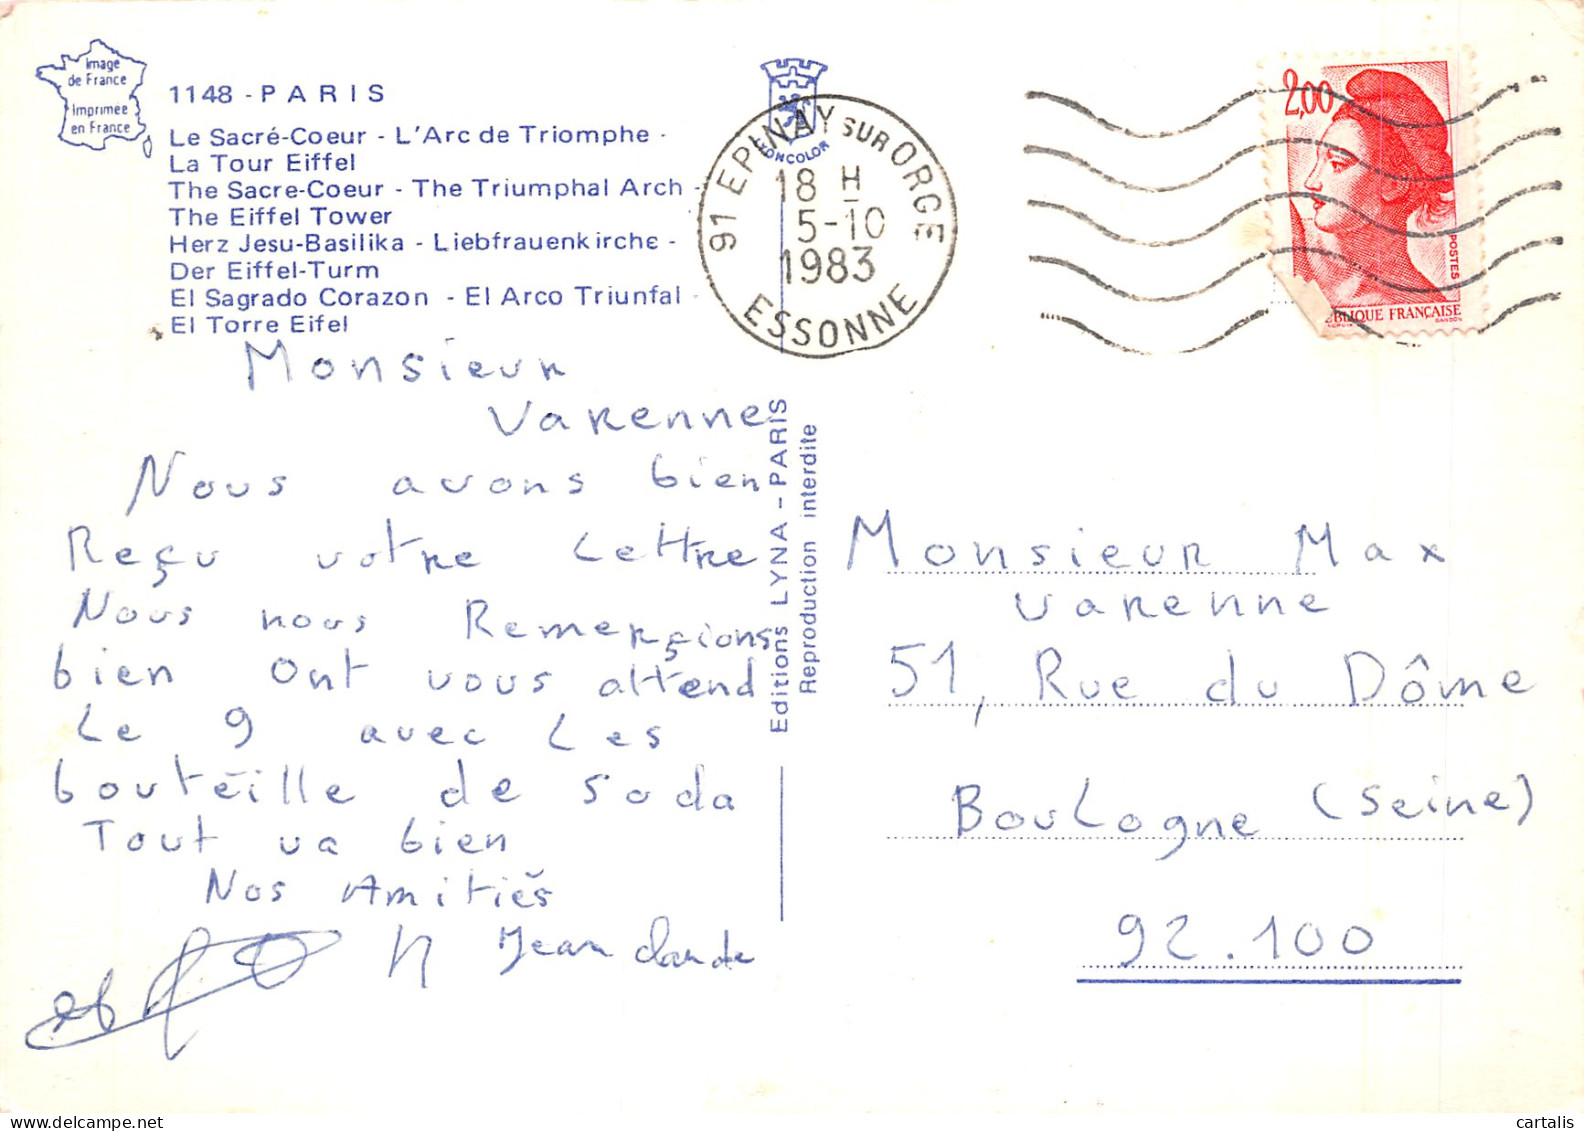 Image
de France
Imprimee
en France
1148 - PARIS
Le Sacré-Coeur - L'Arc de Triomphe -
La Tour Eiffel
The Sacre-Coeur - The Triumphal Arch -
The Eiffel Tower
Herz Jesu-Basilika - Liebfrauenkirche -
Der Eiffel-Turm
El Sagrado Corazon - El Arco Triunfal -
El Torre Eifel
91 EPINAY SUR ORGE
18 H
5-10
1983
ESSONNE
2,00
POSTES
BLIQUE FRANÇAISE
GANDON
Monsieur
Varennes
Nous avons bien
Reçu votre Lettre
Nous nous Remerçions
bien Ont vous attend
Le 9 avec Les
boutéille de soda
Tout va bien
Nos Amitiés
Jean claude
Editions LYNA - PARIS
Reproduction interdite
Monsieur Max
varenne
51, Rue du Dôme
Boulogne (seine)
92.100
cartalis